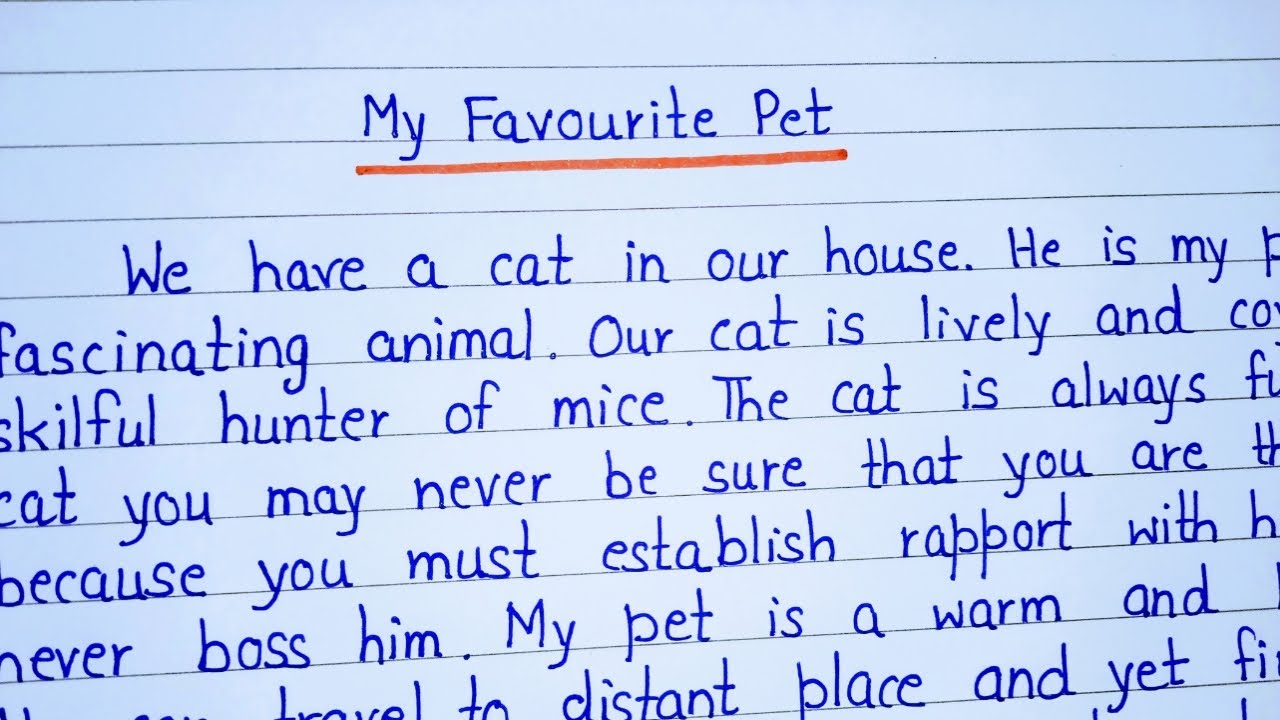 My Favourite Pet
We have a cat in our house. He is my
fascinating animal. Our cat is lively and
skilful hunter of mice. The cat is always
cat you may never be sure that you are
because you must establish rapport with
never boss him. My pet is a warm and
travel to distant place and yet